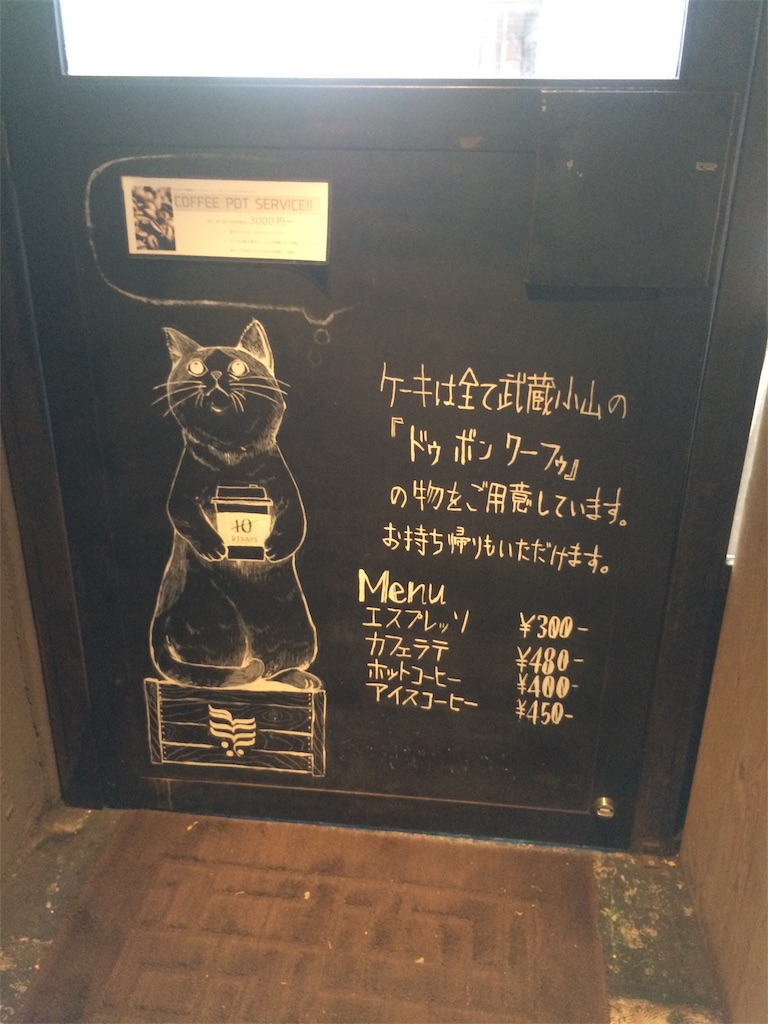 COFFEE POT SERVICE!!
3000円〜
ケーキは全て武蔵小山の
『ドゥ ボン クーフゥ』
の物をご用意しています。
お持ち帰りもいただけます。
10
Menu
エスプレッソ ¥300-
カフェラテ ¥480-
ホットコーヒー ¥400-
アイスコーヒー ¥450-